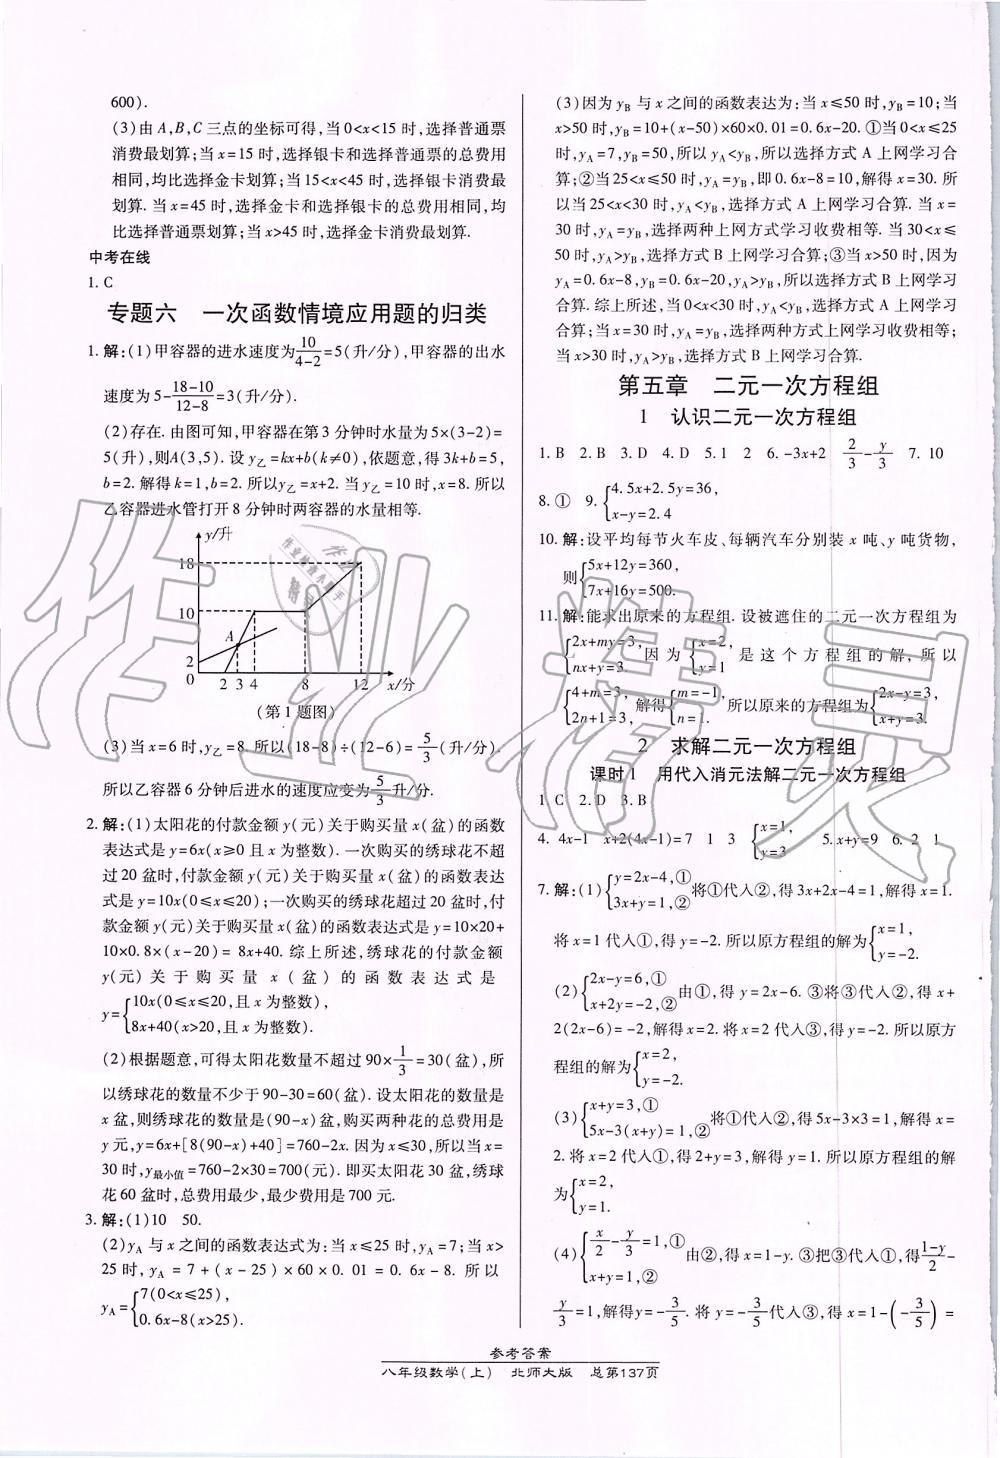 600).
(3)由A,B,C三点的坐标可得,当0<x<15时,选择普通票
消费最划算;当x=15时,选择银卡和选择普通票的总费用
相同,均比选择金卡划算;当15<x<45时,选择银卡消费最
划算. 当x=45时,选择金卡和选择银卡的总费用相同,均
比选择普通票划算;当x>45时,选择金卡消费最划算.
中考在线
1. C
专题六 一次函数情境应用题的归类
1. 解:(1)甲容器的进水速度为10/(4-2)=5(升/分),甲容器的出水
速度为5-(18-10)/(12-8)=3(升/分).
(2)存在. 由图可知,甲容器在第3分钟时水量为5×(3-2)=
5(升),则A(3,5). 设y乙=kx+b(k≠0),依题意,得3k+b=5,
b=2. 解得k=1,b=2. 所以y乙=x+2. 当y乙=10时,x=8. 所以
乙容器进水管打开8分钟时两容器的水量相等.
y/升
18
10
A
2
0 2 3 4 8 12 x/分
(第1题图)
(3)当x=6时,y乙=8. 所以(18-8)÷(12-6)=5/3(升/分).
所以乙容器6分钟后进水的速度应变为5/3升/分.
2. 解:(1)太阳花的付款金额y(元)关于购买量x(盆)的函数
表达式是y=6x(x≥0且x为整数). 一次购买的绣球花不超
过20盆时,付款金额y(元)关于购买量x(盆)的函数表达
式是y=10x(0≤x≤20);一次购买的绣球花超过20盆时,付
款金额y(元)关于购买量x(盆)的函数表达式是y=10×20+
10×0.8×(x-20)=8x+40. 综上所述,绣球花的付款金额
y(元)关于购买量x(盆)的函数表达式是
y={10x(0≤x≤20,且x为整数),
8x+40(x>20,且x为整数).
(2)根据题意,可得太阳花数量不超过90×1/3=30(盆),所
以绣球花的数量不少于90-30=60(盆). 设太阳花的数量是
x盆,则绣球花的数量是(90-x)盆,购买两种花的总费用是
y元,y=6x+[8(90-x)+40]=760-2x. 因为x≤30,所以当x=
30时,y最小值=760-2×30=700(元). 即买太阳花30盆,绣球
花60盆时,总费用最少,最少费用是700元.
3. 解:(1)10 50.
(2)yA与x之间的函数表达式为:当x≤25时,yA=7;当x>
25时,yA=7+(x-25)×60×0.01=0.6x-8. 所以
yA={7(0<x≤25),
0.6x-8(x>25).
(3)因为yB与x之间的函数表达为:当x≤50时,yB=10;当
x>50时,yB=10+(x-50)×60×0.01=0.6x-20. ①当0<x≤25
时,yA=7,yB=50,所以yA<yB,所以选择方式A上网学习合
算;②当25<x≤50时,yA=yB,即0.6x-8=10,解得x=30. 所
以当25<x<30时,yA<yB,选择方式A上网学习合算. 当x=
30时,yA=yB,选择两种上网方式学习收费相等. 当30<x≤
50时,yA>yB,选择方式B上网学习合算;③当x>50时,因为
yA=0.6x-8,yB=0.6x-20,yA>yB,所以选择方式B上网学习
合算. 综上所述,当0<x<30时,yA<yB,选择方式A上网学习
合算;当x=30时,yA=yB,选择两种方式上网学习收费相等;
当x>30时,yA>yB,选择方式B上网学习合算.
第五章 二元一次方程组
1 认识二元一次方程组
1. B 2. B 3. D 4. D 5. 1 2 6. -3x+2 2/3-y/3 7. 10
8. ① 9. {4.5x+2.5y=36,
x-y=2.4
10. 解:设平均每节火车皮、每辆汽车分别装x吨、y吨货物,
则{5x+12y=360,
7x+16y=500.
11. 解:能求出原来的方程组. 设被遮住的二元一次方程组为
{2x+my=3, nx+y=3. 因为{x=2, y=1是这个方程组的解,所以
{4+m=3, 2n+1=3, 解得{m=-1, n=1. 所以原来的方程组为{2x-y=3, x+y=3.
2 求解二元一次方程组
课时1 用代入消元法解二元一次方程组
1. C 2. D 3. B
4. 4x-1 x+2(4x-1)=7 1 3 {x=1, y=3 5. x+y=9 6. 2 1
7. 解:(1){y=2x-4,① 3x+y=1,②将①代入②,得3x+2x-4=1,解得x=1.
将x=1代入①,得y=-2. 所以原方程组的解为{x=1, y=-2.
(2){2x-y=6,① x+2y=-2,②由①,得y=2x-6. ③将③代入②,得x+
2(2x-6)=-2,解得x=2. 将x=2代入③,得y=-2. 所以原方
程组的解为{x=2, y=-2.
(3){x+y=3,① 5x-3(x+y)=1,②将①代入②,得5x-3×3=1,解得x=
2. 将x=2代入①,得2+y=3,解得y=1. 所以原方程组的解
为{x=2, y=1.
(4){x/2-y/3=1,① x+y=1,②由②,得x=1-y. ③把③代入①,得(1-y)/2-
y/3=1,解得y=-3/5. 将y=-3/5代入③,得x=1-(-3/5)=
参考答案
八年级数学(上) 北师大版 总第137页
作业精灵